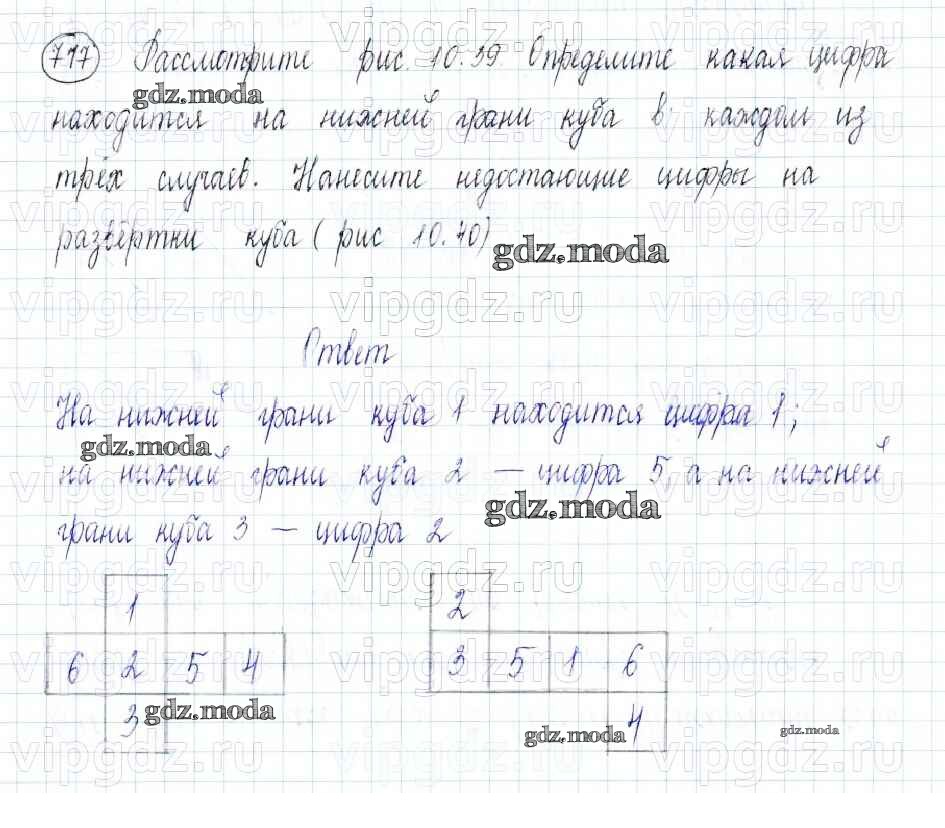 717 Рассмотрите рис. 10.39 Определите какая цифра
находится на нижней грани куба в каждом из
трёх случаев. Нанесите недостающие цифры на
развёртки куба (рис 10.40)
Ответ
На нижней грани куба 1 находится цифра 1;
на нижней грани куба 2 — цифра 5, а на нижней
грани куба 3 — цифра 2
1
6 2 5 4
3
2
3 5 1 6
4
gdz.moda
gdz.moda
gdz.moda
gdz.moda
gdz.moda
gdz.moda
gdz.moda
vipgdz.ru